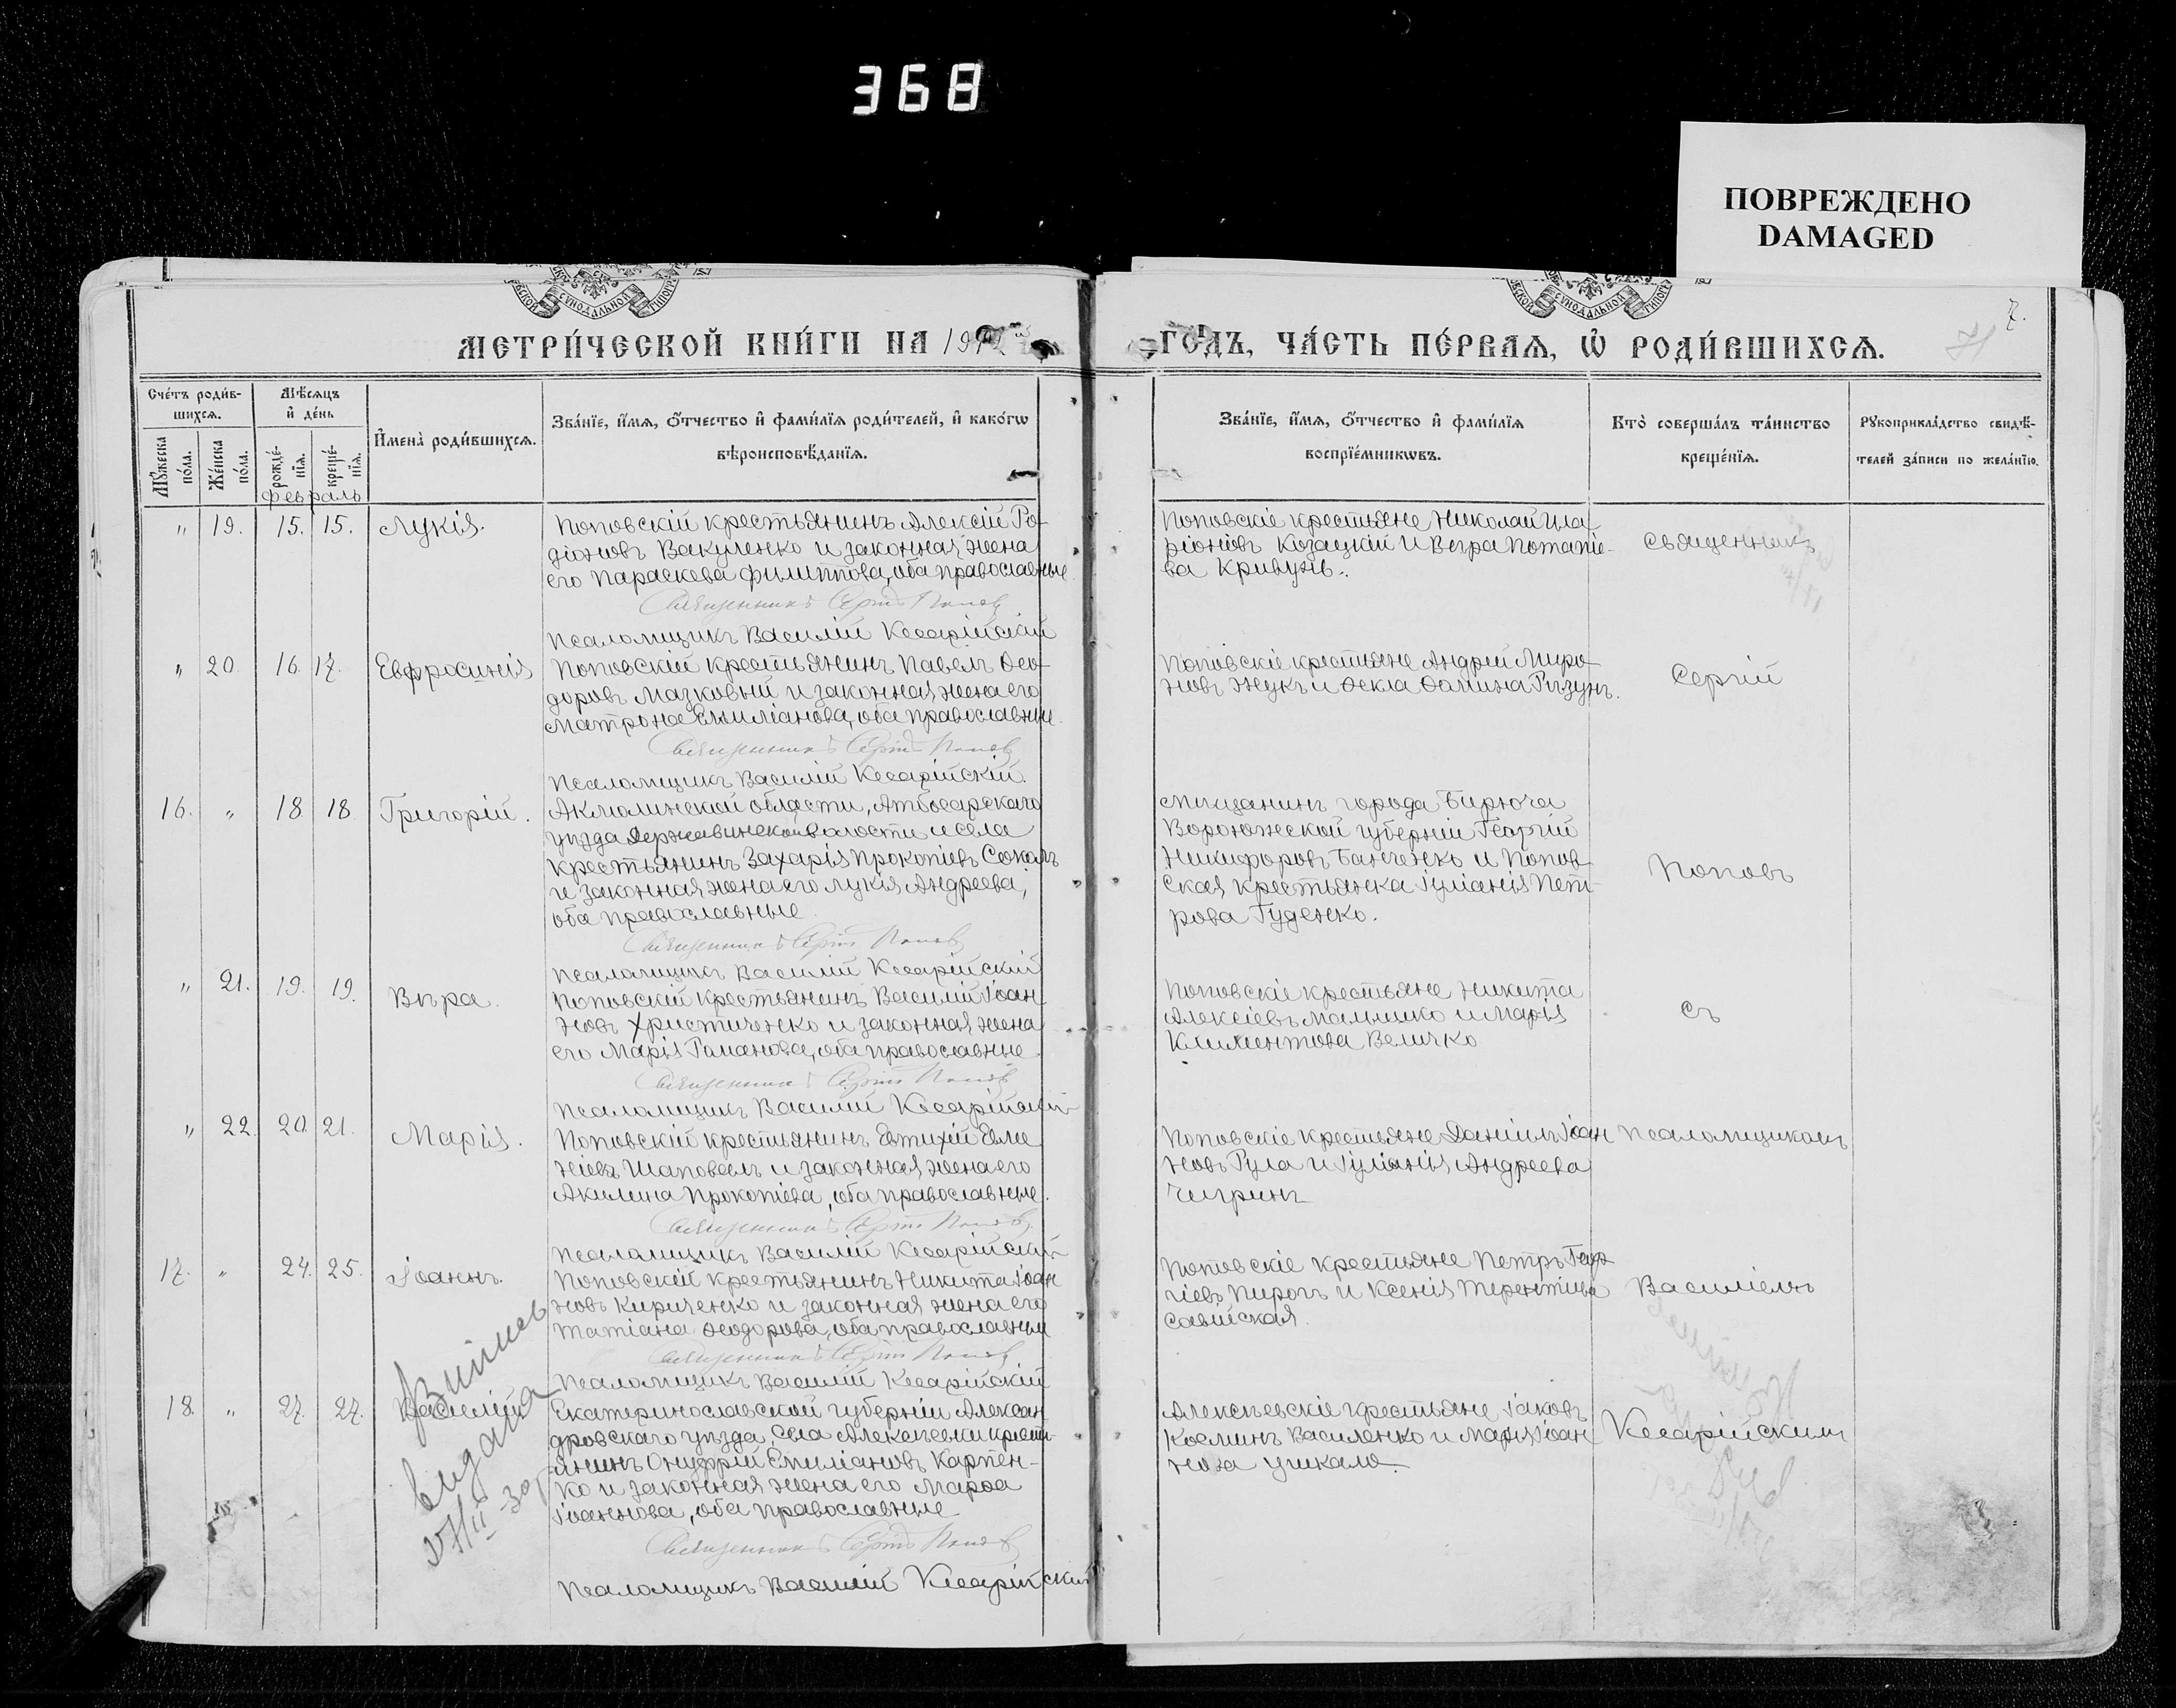 368
ПОВРЕЖДЕНО
DAMAGED
СУНОДАЛЬНОЙ
СУНОДАЛЬНОЙ
7.
МЕТРИ́ЧЕСКОЙ КНИ́ГИ НА 191
ГОДЪ, ЧА́СТЬ ПЕ́РВАЯ, Ѡ РОДИ́ВШИХСЯ.
Сче́тъ роди́в-
шихся.
Мѣ́сяцъ
и҆ де́нь
Мꙋ́жеска по́ла.
Же́нска по́ла.
рожде́-нїя.
креще́-нїя.
И҆мена̀ роди́вшихся.
Зва́нїе, и҆́мя, ѻ҆́тчество и҆ фамї́лїя роди́телей, и҆ како́гѡ
вѣроисповѣ́данїя.
Зва́нїе, и҆́мя, ѻ҆́тчество и҆ фамї́лїя
воспрїе́мникѡвъ.
Кто̀ соверша́лъ та́инство
креще́нїя.
Рꙋкоприкла́дство свидѣ́-
телей за́писи по жела́нїю.
февраль
" 19. 15. 15. Лукія.
Поповскій крестьянинъ Алексій Ро-
діоновъ Вакуленко и законная жена
его Параскева Филиппова, оба православные
Священникъ Сергій Поповъ
Псаломщикъ Василій Кесарійскій
Поповскіе крестьяне Николай Ила-
ріоновъ Козацкій и Вѣра Потапіе-
ва Кривунь.
Священникъ
" 20. 16. 17. Евфросинія
Поповскій крестьянинъ Павелъ Ѳео-
доровъ Мазковый и законная жена его
Матрона Емиліанова, оба православные.
Священникъ Сергій Поповъ
Псаломщикъ Василій Кесарійскій.
Поповскіе крестьяне Андрей Миро-
новъ Жукъ и Ѳекла Ѳомина Ризунъ.
Сергій
16. " 18. 18. Григорій.
Акмолинской области, Атбасарскаго
уѣзда Державинской волости и села
крестьянинъ Захарія Прокопіевъ Сокалъ
и законная жена его Лукія Андреева,
оба православные.
Священникъ Сергій Поповъ
Псаломщикъ Василій Кесарійскій
Мѣщанинъ города Бирюча
Воронежской губерніи Георгій
Никифоровъ Банченко и Попов-
ская крестьянка Іуліанія Пет-
рова Гуденко.
Поповъ
" 21. 19. 19. Вѣра.
Поповскій крестьянинъ Василій Іоан-
новъ Христиченко и законная жена
его Марія Романова, оба православные.
Священникъ Сергій Поповъ
Псаломщикъ Василій Кесарійскій
Поповскіе крестьяне Никита
Алексіевъ Малышко и Марія
Климентова Величко
съ
" 22. 20. 21. Марія.
Поповскій крестьянинъ Евтихій Евме-
ніевъ Шаповалъ и законная жена его
Акилина Прокопіева, оба православные.
Священникъ Сергій Поповъ
Псаломщикъ Василій Кесарійскій
Поповскіе крестьяне Даніилъ Іоан-
новъ Рула и Іуліанія Андреева
Чигринъ
псаломщикомъ
17. " 24. 25. Іоаннъ.
Поповскій крестьянинъ Никита Іоан-
новъ Кириченко и законная жена его
Татіана Ѳеодорова, оба православные
Священникъ Сергій Поповъ
Псаломщикъ Василій Кесарійскій
Поповскіе крестьяне Петръ Геор-
гіевъ Пирогъ и Ксенія Терентіева
Савійская.
Василіемъ
18. " 27. 27. Василій
Екатеринославской губерніи Алексан-
дровскаго уѣзда, села Алексѣевки кресть-
янинъ Онуфрій Емиліановъ Карпен-
ко и законная жена его Марѳа
Іоаннова, оба православные
Священникъ Сергій Поповъ
Псаломщикъ Василій Кесарійскій
Алексѣевскіе крестьяне Іаковъ
Косминъ Василенко и Марія Іоан-
нова Ушкало.
Кесарійскимъ
выдана